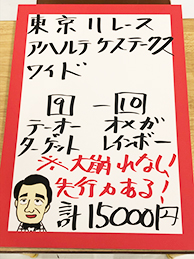 東京11レース
アハルテケステークス
ワイド
9 — 10
テーオー オメガ
ターゲット レインボー
※大崩れない!
先行力ある!
計15000円